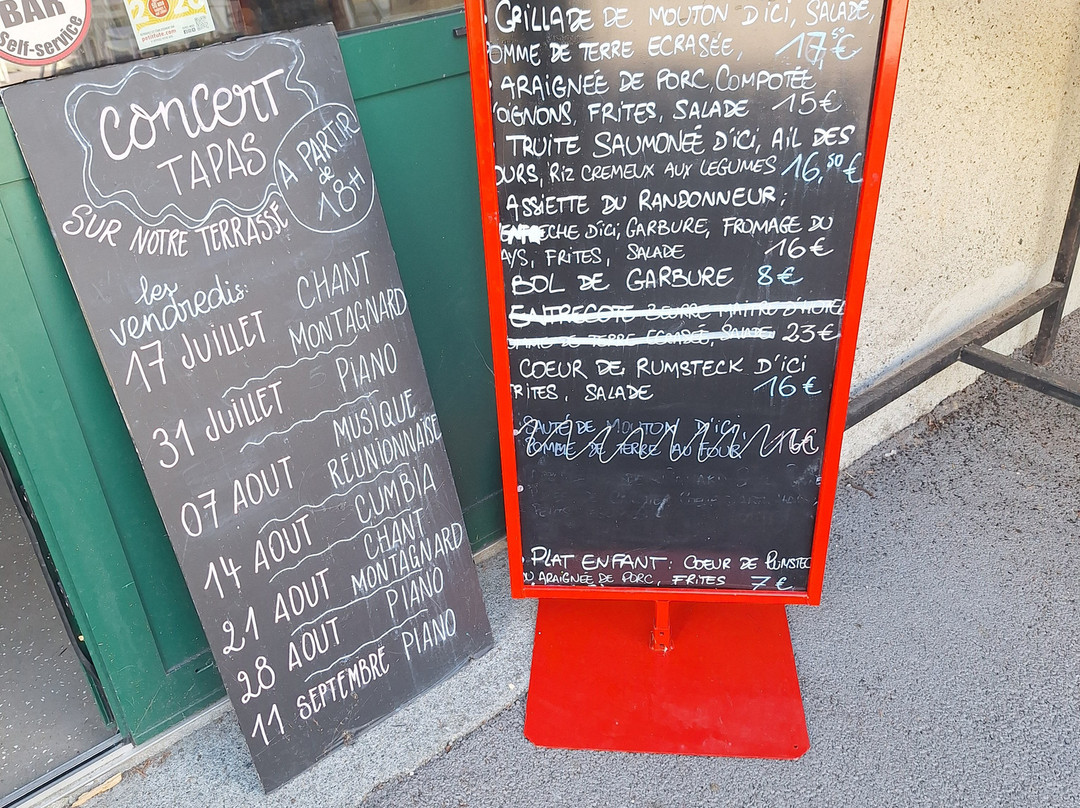 BAR
Self-service
petitfute.com
CONCERT
TAPAS
A PARTIR
de
18H
SUR NOTRE TERRASSE
les
vendredis:
17 JUILLET CHANT
MONTAGNARD
31 JUILLET PIANO
07 AOUT MUSIQUE
REUNIONNAISE
14 AOUT CUMBIA
21 AOUT CHANT
MONTAGNARD
28 AOUT PIANO
11 SEPTEMBRE PIANO
GRILLADE DE MOUTON D'ICI, SALADE,
POMME DE TERRE ECRASÉE, 17,50€
ARAIGNÉE DE PORC, COMPOTÉE
D'OIGNONS, FRITES, SALADE 15€
TRUITE SAUMONÉE D'ICI, AIL DES
OURS, RIZ CREMEUX AUX LEGUMES 16,50€
ASSIETTE DU RANDONNEUR:
VENTRECHE D'ICI, GARBURE, FROMAGE DU
PAYS, FRITES, SALADE 16€
BOL DE GARBURE 8€
ENTRECOTE BEURRE MAITRE D'HOTEL
POMME DE TERRE ECRASÉE, SALADE 23€
COEUR DE RUMSTECK D'ICI
FRITES, SALADE 16€
SAUTÉ DE MOUTON D'ICI
POMME DE TERRE AU FOUR 16€
PLAT ENFANT: COEUR DE RUMSTEC
OU ARAIGNÉE DE PORC, FRITES 7€